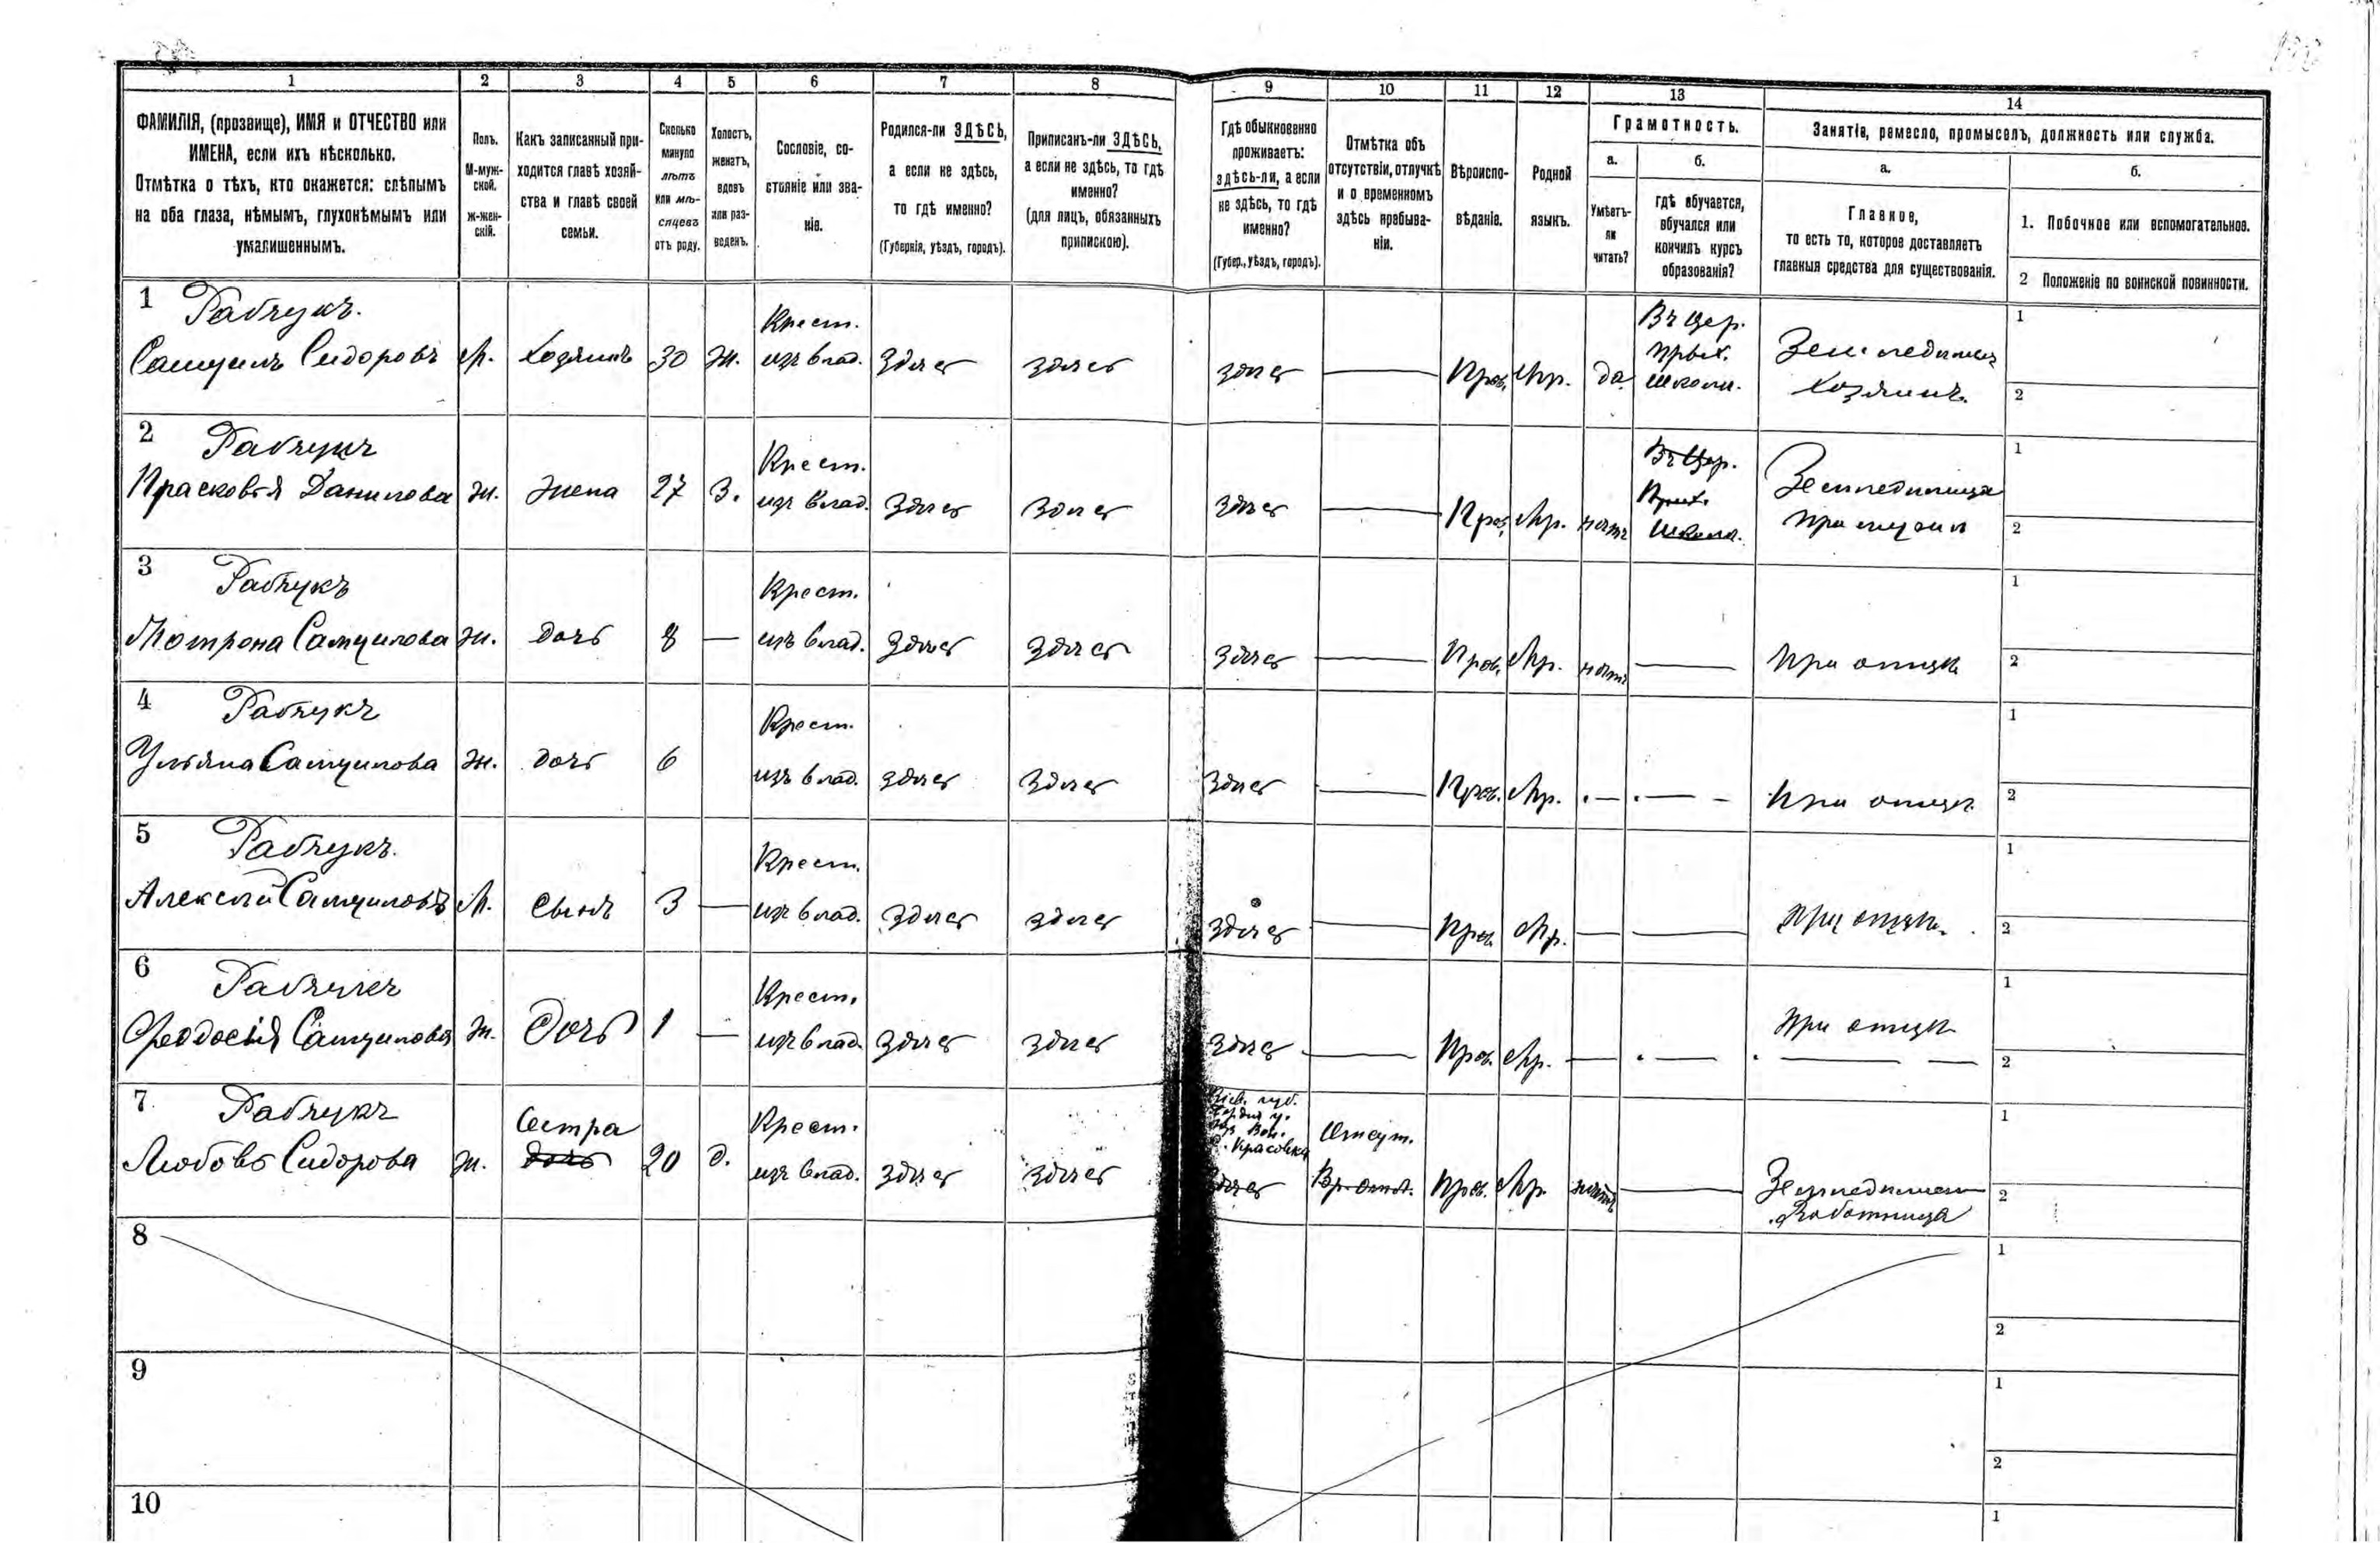 1 2 3 4 5 6 7 8 9 10 11 12 13 14
ФАМИЛІЯ, (прозвище), ИМЯ и ОТЧЕСТВО или
ИМЕНА, если ихъ нѣсколько.
Отмѣтка о тѣхъ, кто окажется: слѣпымъ
на оба глаза, нѣмымъ, глухонѣмымъ или
умалишеннымъ.
Полъ.
М-муж-
ской.
ж-жен-
скій.
Какъ записанный при-
ходится главѣ хозяй-
ства и главѣ своей
семьи.
Сколько
минуло
лѣтъ
или мѣ-
сяцевъ
отъ роду.
Холостъ,
женатъ,
вдовъ
или раз-
веденъ.
Сословіе, со-
стояніе или зва-
ніе.
Родился-ли ЗДѢСЬ,
а если не здѣсь,
то гдѣ именно?
(Губернія, уѣздъ, городъ).
Приписанъ-ли ЗДѢСЬ,
а если не здѣсь, то гдѣ
именно?
(для лицъ, обязанныхъ
припискою).
Гдѣ обыкновенно
проживаетъ:
здѣсь-ли, а если
не здѣсь, то гдѣ
именно?
(Губер., уѣздъ, городъ).
Отмѣтка объ
отсутствіи, отлучкѣ
и о временномъ
здѣсь пребыва-
ніи.
Вѣроиспо-
вѣданіе.
Родной
языкъ.
Грамотность.
а.
Умѣетъ-
ли
читать?
б.
гдѣ обучается,
обучался или
кончилъ курсъ
образованія?
Занятіе, ремесло, промыселъ, должность или служба.
а.
Главное,
то есть то, которое доставляетъ
главныя средства для существованія.
б.
1. Побочное или вспомогательное.
2 Положеніе по воинской повинности.
1 Рабчукъ. Крест. Въ цер. 1
прих. Земледѣлец
Самуилъ Сидоровъ М. Хозяинъ 30 ж. изъ влад. Здѣсь здѣсь здѣсь Прав. Мр. да школи. Хозяинъ. 2
2 Рабчукъ Крест. Въ Цер. 1
Прих. Земледѣлица
Прасковья Данилова ж. жена 27 З. изъ влад. Здѣсь Здѣсь здѣсь Прав. Мр. нѣтъ Школи. При мужѣ 2
3 Рабчукъ Крест. 1
Мотрона Самуилова ж. дочь 8 изъ влад. Здѣсь здѣсь здѣсь Прав. Мр. нѣтъ При отцѣ 2
4 Рабчукъ Крест. 1
Ульяна Самуилова ж. дочь 6 изъ влад. здѣсь здѣсь здѣсь Прав. Мр. При отцѣ 2
5 Рабчукъ. Крест. 1
Алексѣй Самуиловъ М. сынъ 3 изъ влад. здѣсь здѣсь здѣсь Прав. Мр. При отцѣ. 2
6 Рабчукъ Крест. 1
При отцѣ
Феодосія Самуилова ж. дочь 1 изъ влад. здѣсь здѣсь здѣсь Прав. Мр. 2
7 Рабчукъ Сестра Крест. Кіев. губ. Отсут. 1
у.
Вол.
Красовка
Любовь Сидорова ж. дочь 20 д. изъ влад. здѣсь здѣсь здѣсь Вр. Прав. Мр. нѣтъ Земледѣлец 2
Работница
8 1
2
9 1
2
10 1